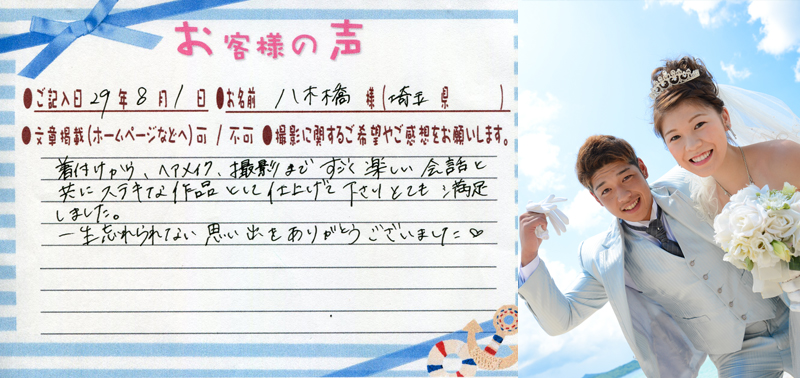 お客様の声
●ご記入日 29 年 8 月 1 日 ●お名前 八木橋 様 (埼玉 県 )
●文章掲載(ホームページなどへ)可 / 不可 ●撮影に関するご希望やご感想をお願いします。
着付けから、ヘアメイク、撮影まで すごく楽しい会話と
共にステキな作品として仕上げて下さりとても満足
しました。
一生忘れられない思い出をありがとうございました∞